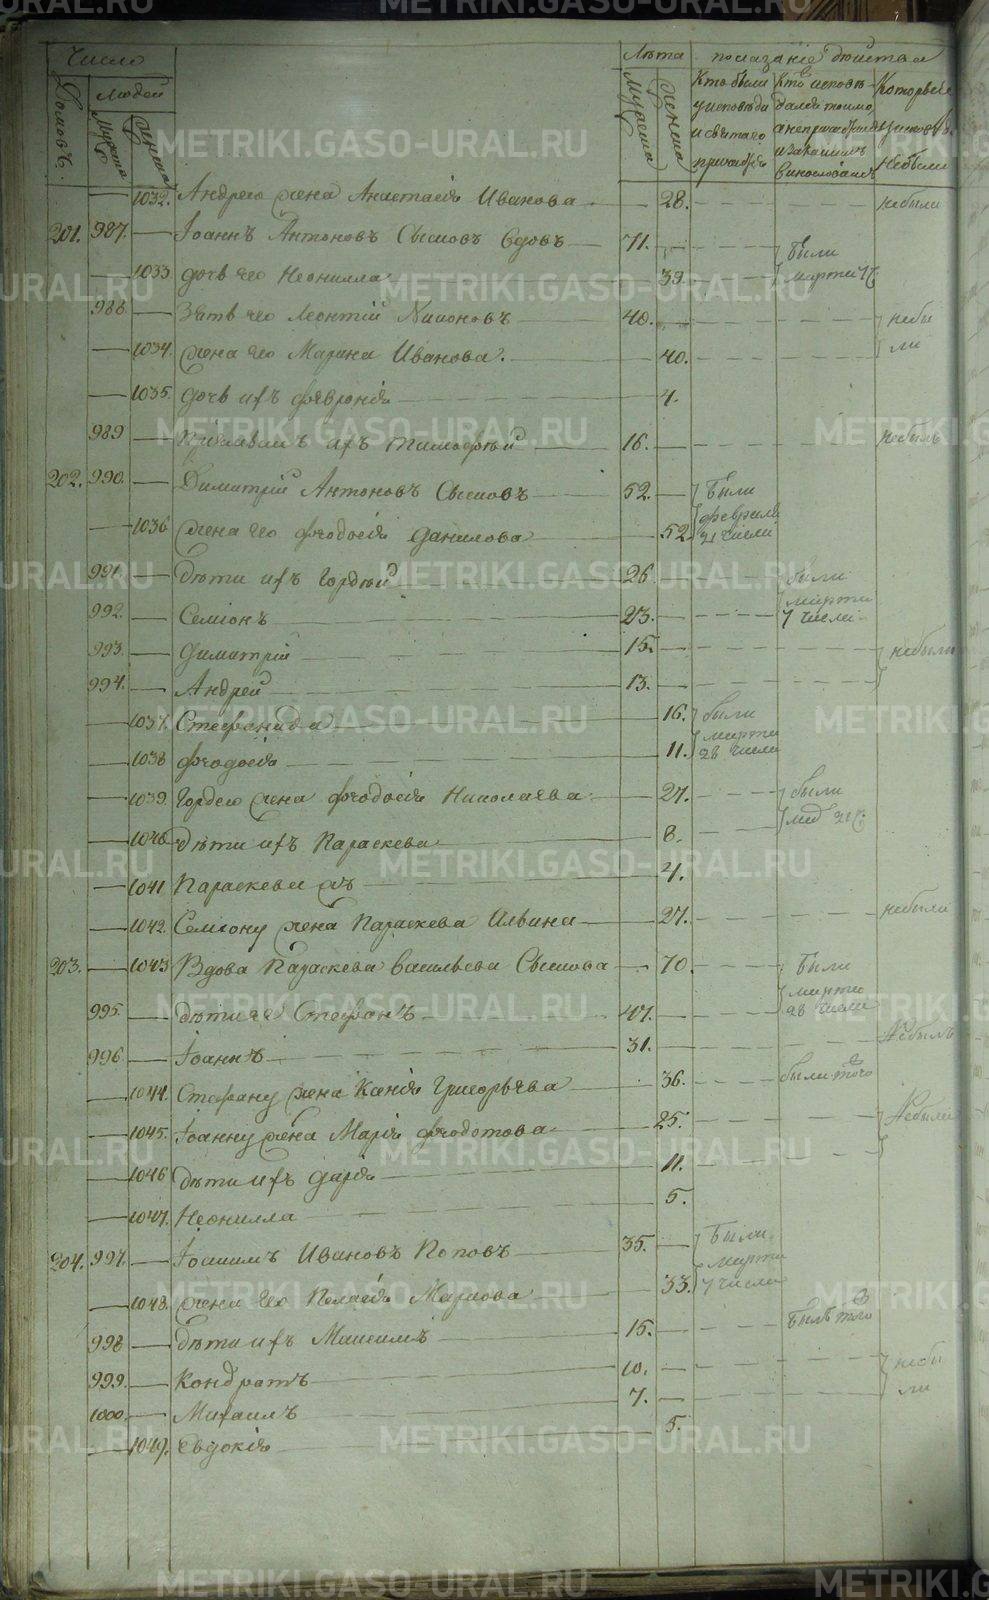 Число
Лѣта
показанiе дѣйства
Домовъ.
Людей
Мужеска
Женска
Мужеска
Женска
Кто были у исповѣди и святаго причастiя
Которые у исповѣди небыли
1032. Андрею жена Анастасiя Иванова 28. небыли
201. 987. Iоаннъ Антоновъ Сысковъ вдовъ 71.
были марта 17
1033 дочь его Неонилла 39.
988 Зять его Леонтiй 40. небы
ли
1034. жена его Марина Иванова. 40.
1035. дочь ихъ Феѵронiя 4.
989 Тимофѣй 16. небылъ
202. 990. Димитрiй Антоновъ Сысковъ 52. Были
февраля
21 числа
1036 жена его Феодосiя Данилова 52.
991. дѣти ихъ Гордѣй 26 были
марта
7 числа
992. Семiонъ 23.
993. Димитрiй 15. небыли
994. Андрей 13.
1037. Стефанида 16. были
марта
28 числа
1038 Феодосiя 11.
1039. Гордею жена Феодосiя Николаева 27. были
1040 дѣти ихъ Параскева 8.
1041 Параскева жъ 4.
1042. Семiону жена Параскева 27. небыли
203. 1043 Вдова Параскева Васильева Сыскова 70. Были
марта
28 числа
995. дѣти ее Стефанъ 47.
996 Iоаннъ 31. Небылъ
1044. Стефану жена Ксенiя Григорьева 36. были
1045. Iоанну жена Марiя Феодотова 25. Небыли
1046 дѣти ихъ Дарiя 11.
1047. Неонилла 5.
204. 997. Iоакимъ Ивановъ Поповъ 35. Были
марта
7 числа
1048. жена его Пелагiя Маркова 33.
998 дѣти ихъ Максимъ 15. Былъ
999. Кондратъ 10. небы
ли
1000. Михаилъ 7.
1049. Евдокiя 5.
METRIKI.GASO-URAL.RU